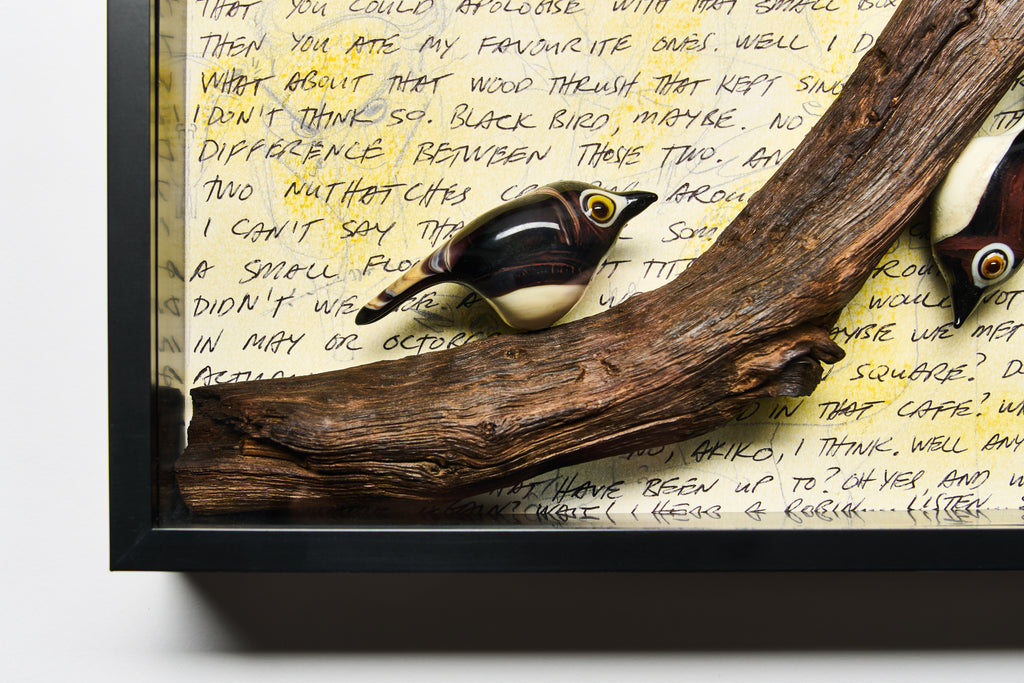 THAT YOU COULD APOLOGISE WITH THAT SMALL BOX
THEN YOU ATE MY FAVOURITE ONES. WELL I D
WHAT ABOUT THAT WOOD THRUSH THAT KEPT SING
I DON'T THINK SO. BLACK BIRD, MAYBE. NO TH
DIFFERENCE BETWEEN THOSE TWO. AN
TWO NUTHATCHES AROU
I CAN'T SAY THA SOM
A SMALL FLO T TIT ROU
DIDN'T WE A W WOULD NOT
IN MAY OR OCTOBE AYBE WE MET
ACTUA SQUARE? D
D IN THAT CAFE? W
NO, AKIKO, I THINK. WELL ANY
HAT HAVE BEEN UP TO? OH YES, AND W
AGAIN? WAIT! I HEAR A ROBIN.... LISTEN